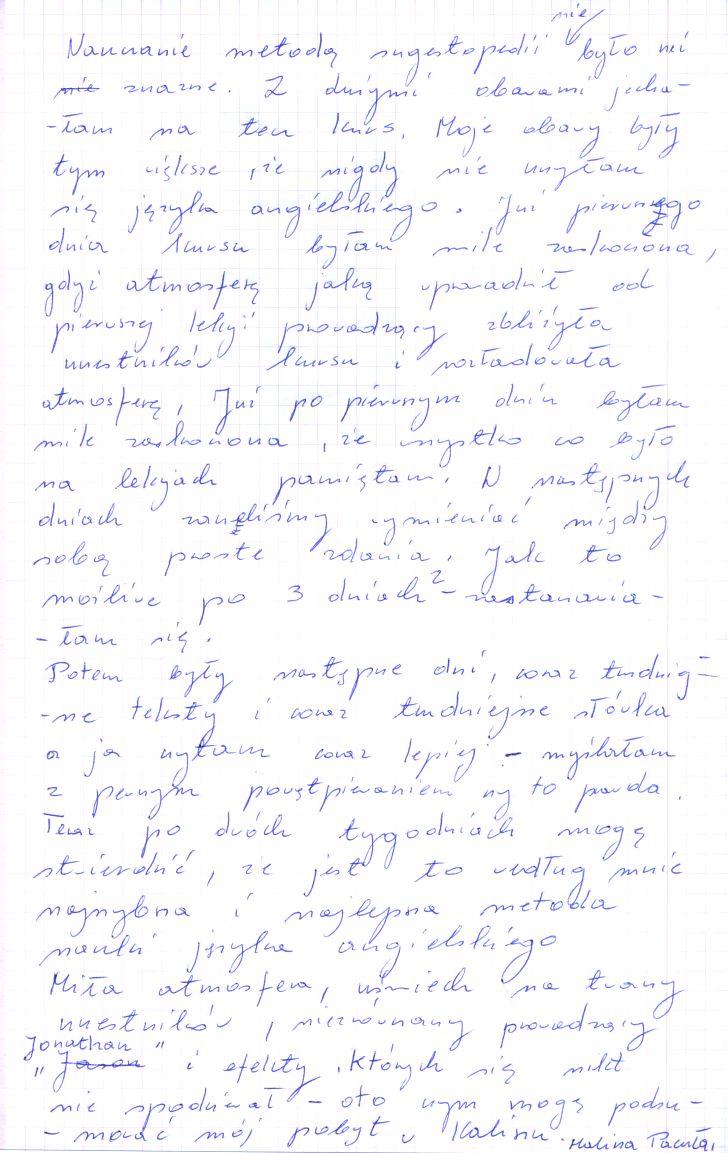 nie
Nauczanie metodą sugestopedii było mi
nie znane. Z dużymi obawami jecha-
-łam na ten kurs. Moje obawy były
tym większe, że nigdy nie uczyłam
się języka angielskiego. Już pierwszego
dnia kursu byłam mile zaskoczona,
gdyż atmosferę jaką wprowadził od
pierwszej lekcji prowadzący zbliżyła
uczestników kursu i rozładowała
atmosferę, Już po pierwszym dniu byłam
mile zaskoczona, że wszystko co było
na lekcjach pamiętam. W następnych
dniach zaczęliśmy wymieniać między
sobą proste zdania. Jak to
możliwe po 3 dniach? - zastanawia-
-łam się.
Potem były następne dni, coraz trudniej-
-sze teksty i coraz trudniejsze słówka
a ja czytam coraz lepiej - myślałam
z pewnym powątpiewaniem czy to prawda.
Teraz po dwóch tygodniach mogę
stwierdzić, że jest to według mnie
najszybsza i najlepsza metoda
nauki języka angielskiego
Miła atmosfera, uśmiech na twarzy
uczestników, niezrównany prowadzący
Jonathan"
"Jason i efekty, których się nikt
nie spodziewał - oto czym mogę podsu-
-mować mój pobyt w Kaliszu. Halina